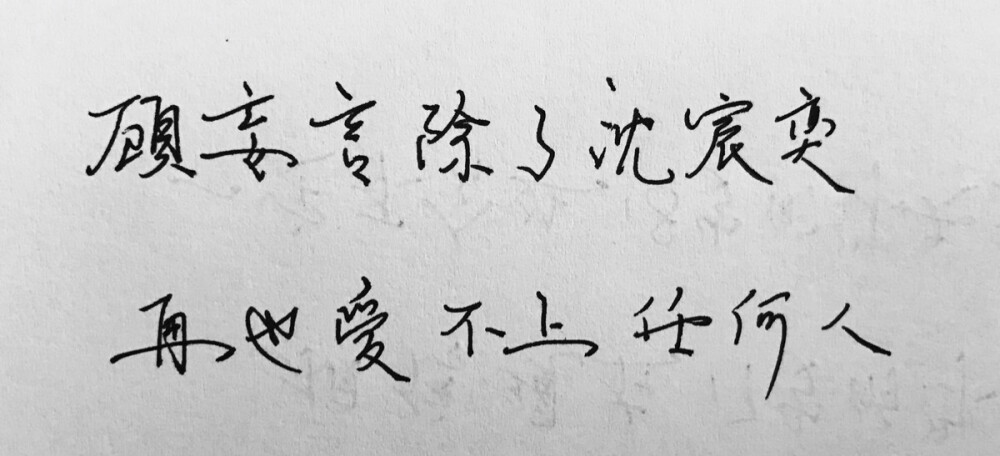 顾妄言除了沈宸奕
再也爱不上任何人